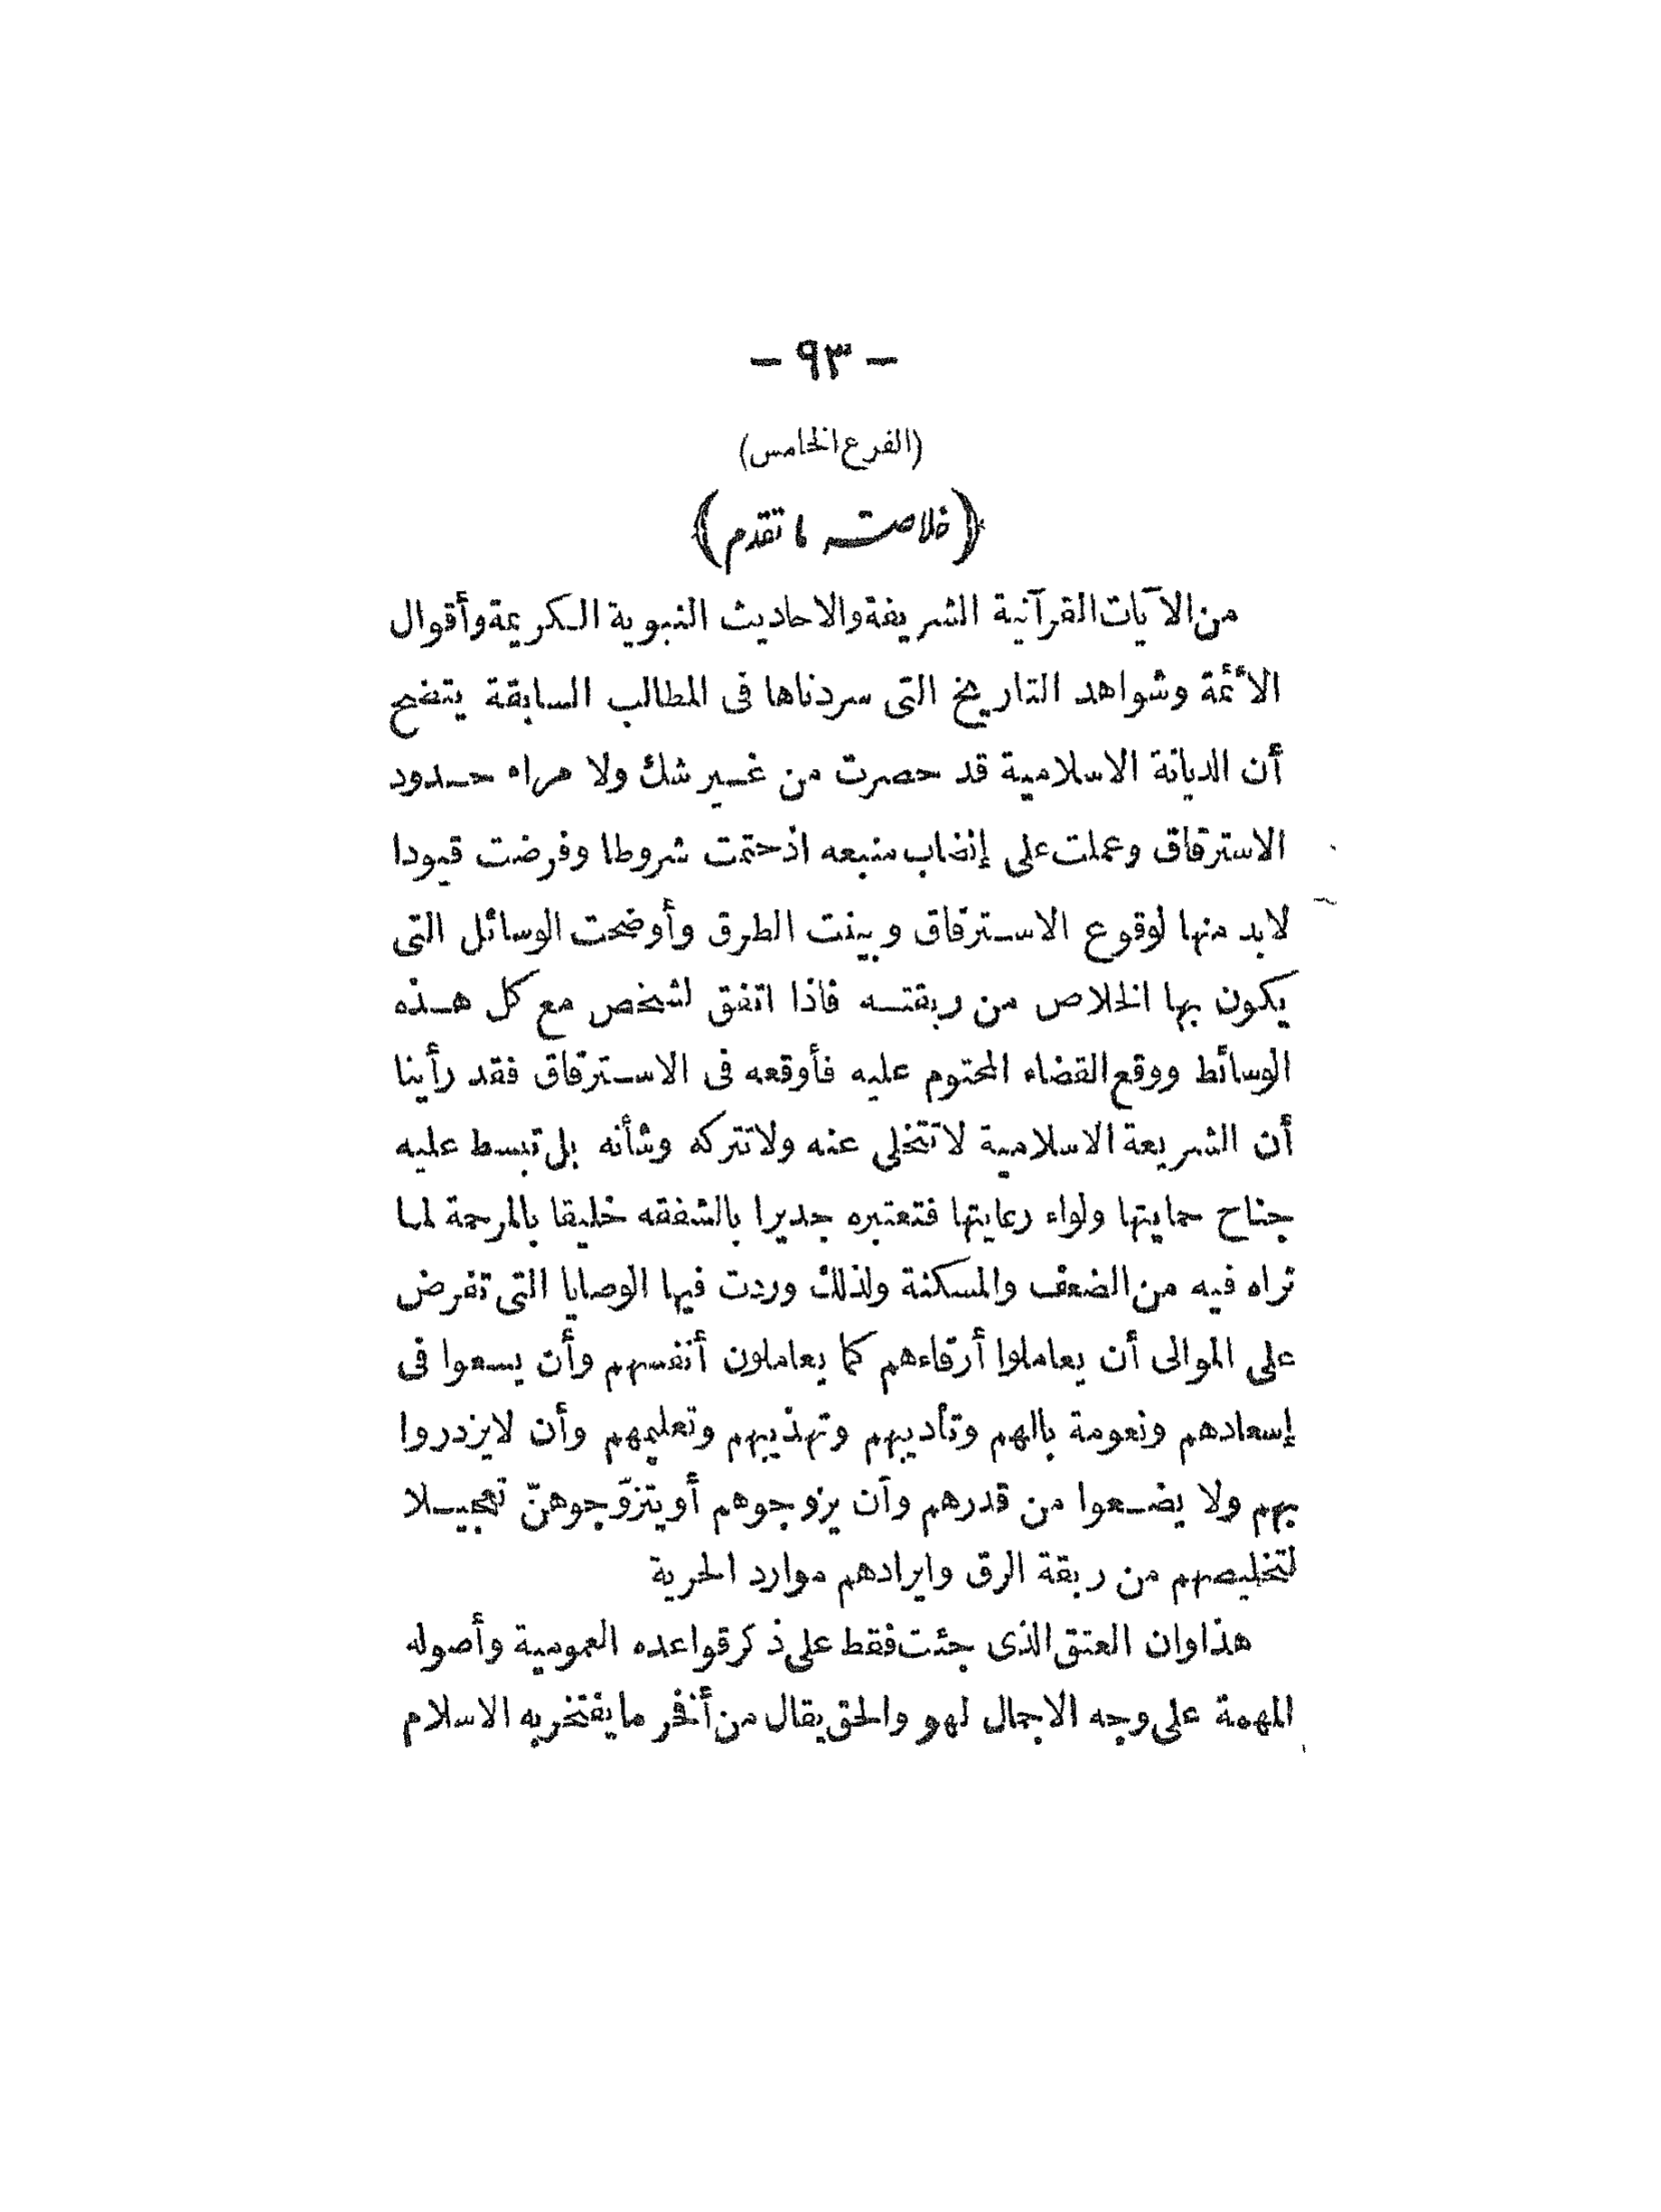 - ٩٣ -
(الفرع الخامس)
﴿خلاصة ما تقدم﴾
من الآيات القرآنية الشريفة والاحاديث النبوية الكريمة وأقوال
الأئمة وشواهد التاريخ التى سردناها فى المطالب السابقة يتضح
أن الديانة الاسلامية قد حصرت من غير شك ولا مراء حدود
الاسترقاق وعملت على إنضاب منبعه اذ حتمت شروطا وفرضت قيودا
لابد منها لوقوع الاسترقاق وبينت الطرق وأوضحت الوسائل التى
يكون بها الخلاص من ربقته فاذا اتفق لشخص مع كل هذه
الوسائط ووقع القضاء المحتوم عليه فأوقعه فى الاسترقاق فقد رأينا
أن الشريعة الاسلامية لا تتخلى عنه ولا تتركه وشأنه بل تبسط عليه
جناح حمايتها ولواء رعايتها فتعتبره جديرا بالشفقه خليقا بالمرحمة لما
تراه فيه من الضعف والمسكنة ولذلك وردت فيها الوصايا التى تفرض
على الموالى أن يعاملوا أرقاءهم كما يعاملون أنفسهم وأن يسعوا فى
إسعادهم ونعومة بالهم وتأديبهم وتهذيبهم وتعليمهم وأن لايزدروا
بهم ولا يضعوا من قدرهم وأن يزوجوهم أو يتزوّجوهنّ تعجيلا
لتخليصهم من ربقة الرق وايرادهم موارد الحرية
هذا وان العتق الذى جئت فقط على ذكر قواعده العمومية وأصوله
المهمة على وجه الاجمال لهو والحق يقال من أفخر ما يفتخر به الاسلام